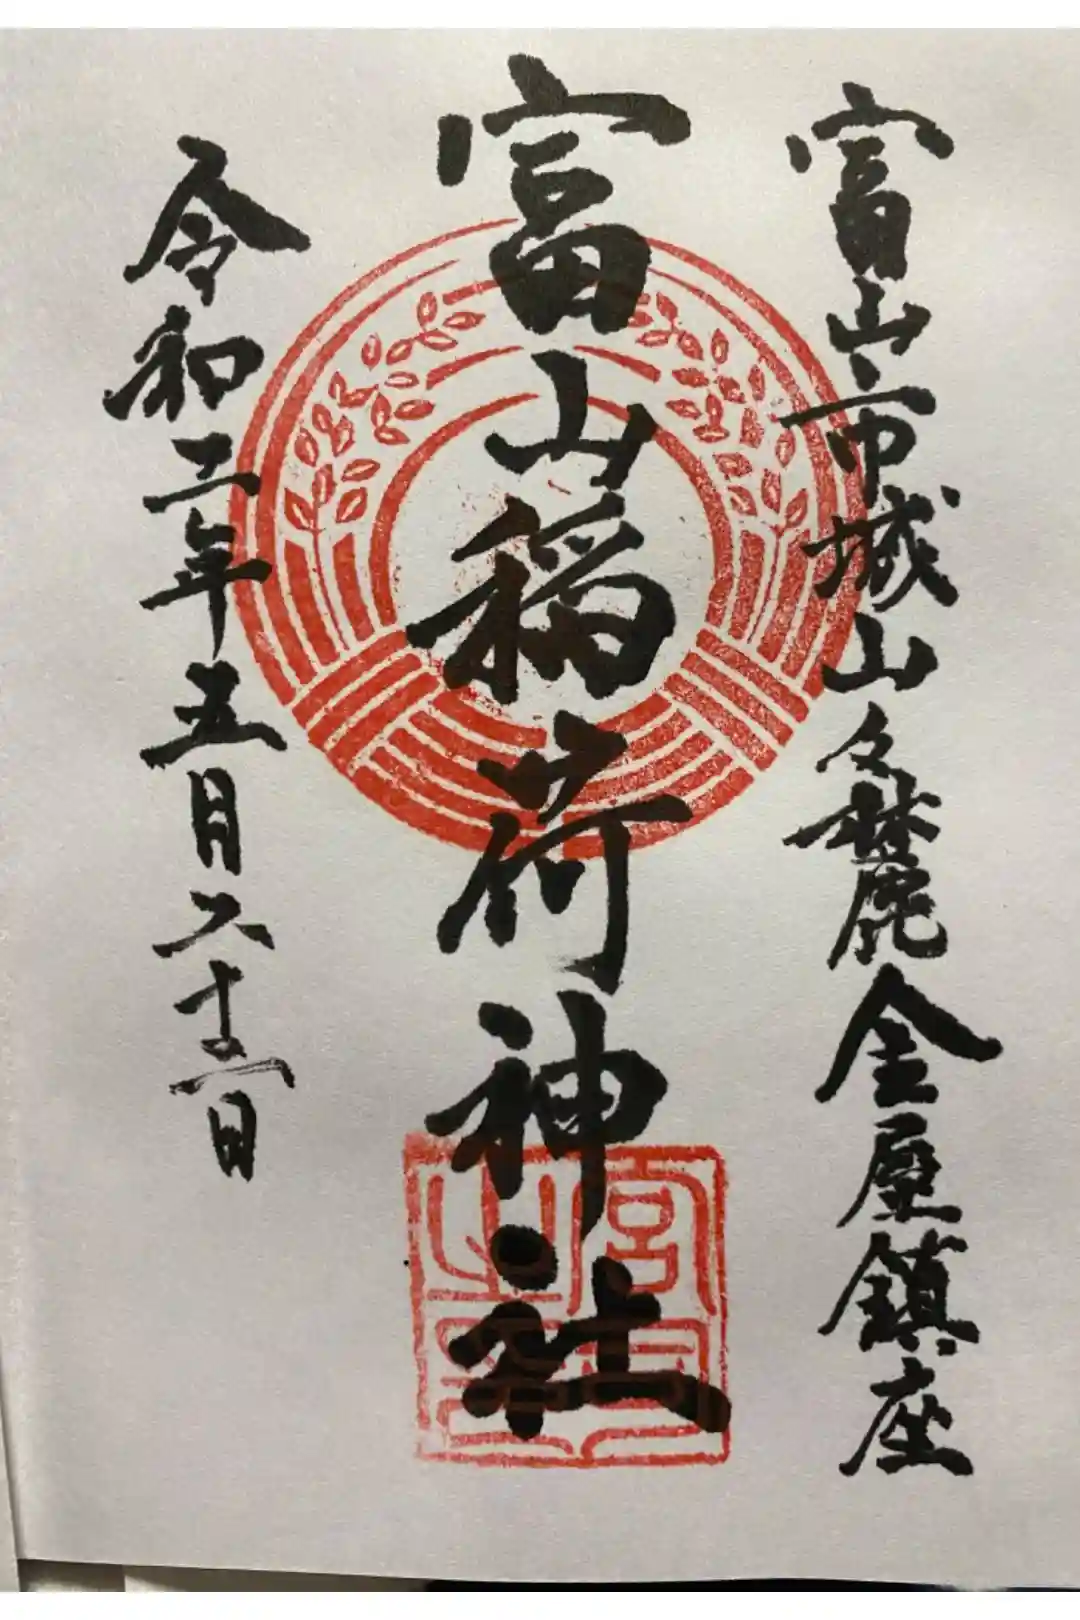 富山市城山々麓金屋鎮座
富山稲荷神社
令和二年五月二十二日
宮司
之印